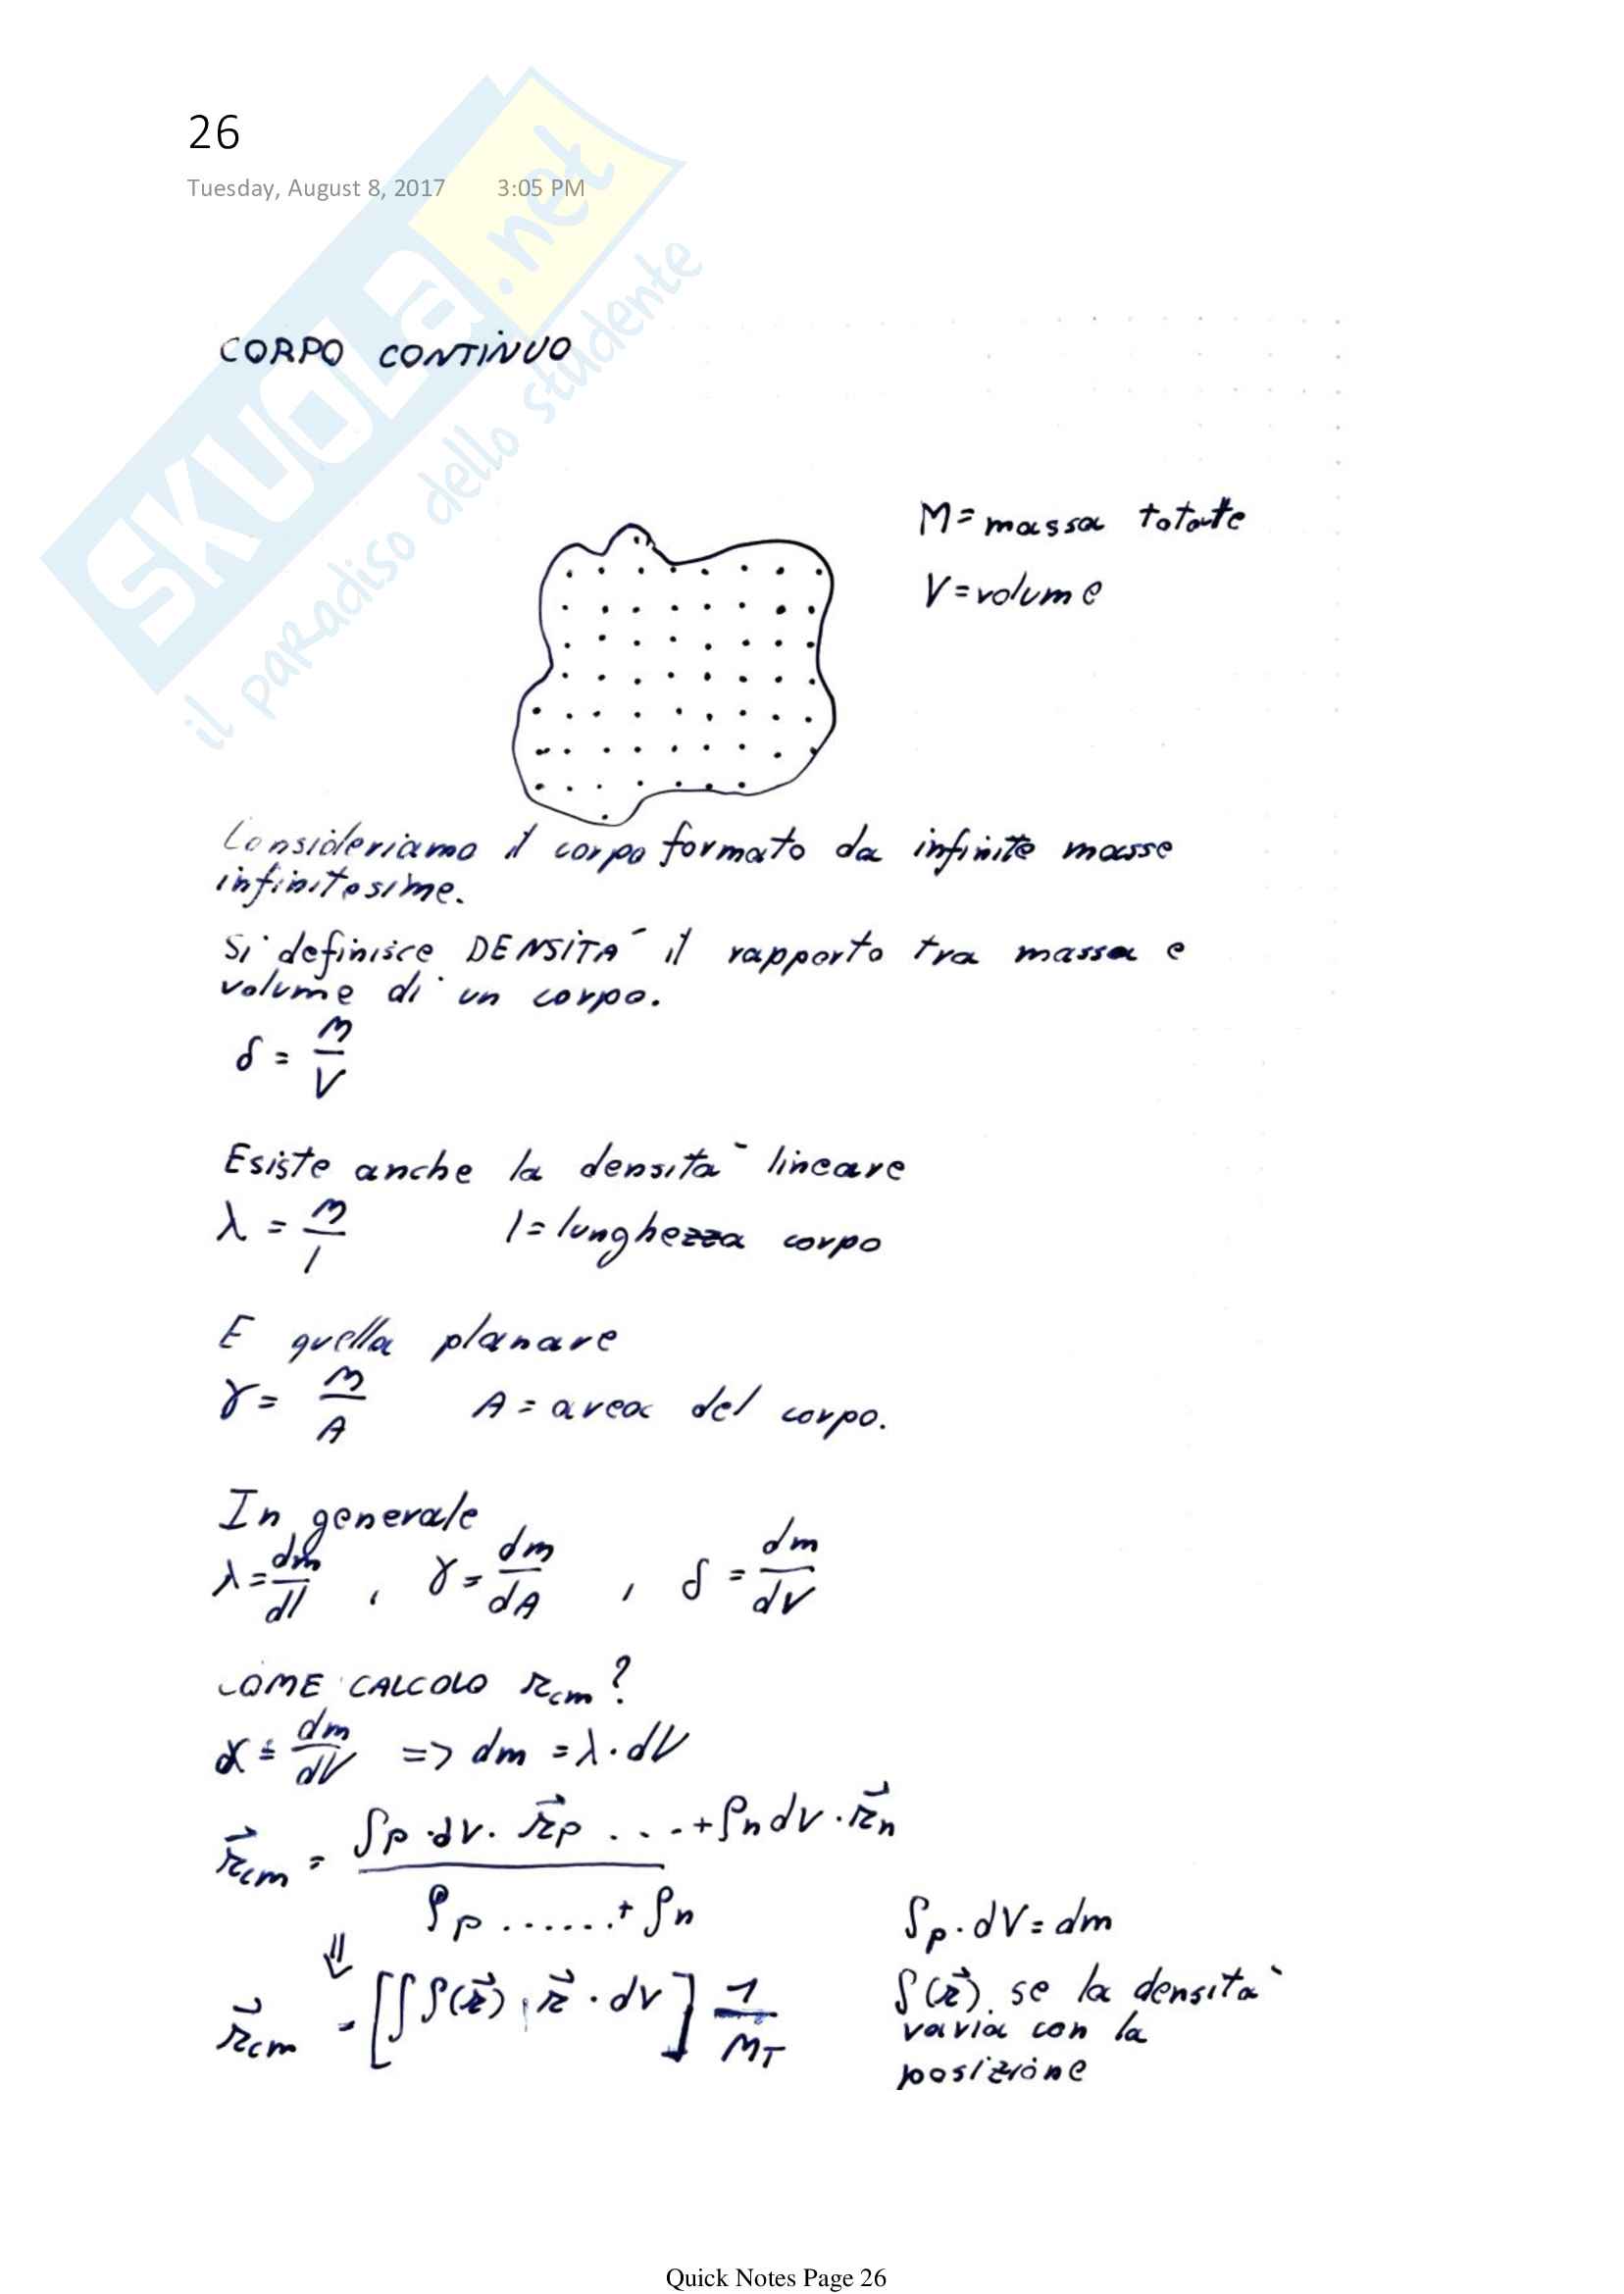 26
Tuesday, August 8, 2017 3:05 PM
SKUOLa.net
il paradiso dello studente
CORPO CONTINUO
M = massa totale
V = volume
Consideriamo il corpo formato da infinite masse
infinitesime.
Si definisce DENSITA´ il rapporto tra massa e
volume di un corpo.
δ = M/V
Esiste anche la densita` lineare
λ = M/l l = lunghezza corpo
E quella planare
γ = M/A A = area del corpo.
In generale
λ = dm/dl , γ = dm/dA , δ = dm/dV
COME CALCOLO rcm?
γ = dm/dV => dm = λ · dV
r⃗cm = (ρp · dV · r⃗p ... + ρn dV · r⃗n) / (ρp ...... + ρn)
ρp · dV = dm
⇓
r⃗cm = [∫ρ(r⃗) · r⃗ · dV] 1/MT
ρ(r⃗). se la densita`
varia con la
posizione
Quick Notes Page 26